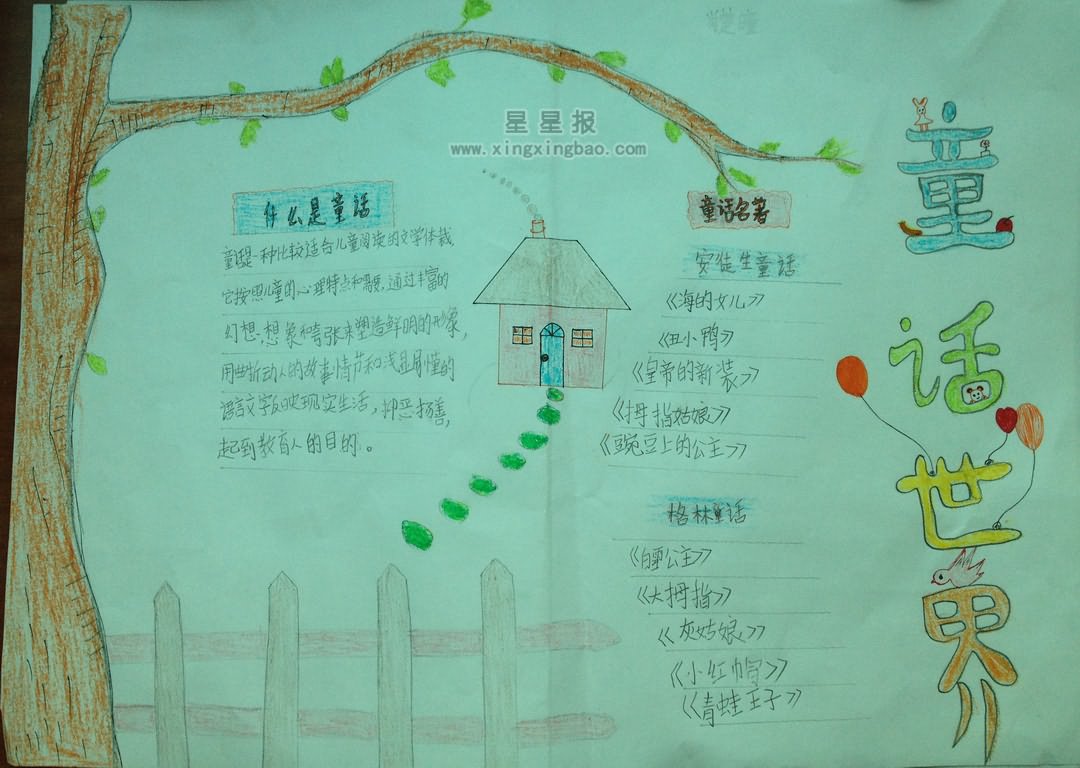 星星报
www.xingxingbao.com
童话世界
什么是童话
童话是一种比较适合儿童阅读的文学体裁,
它按照儿童的心理特点和需要,通过丰富的
幻想,想象和夸张来塑造鲜明的形象,
用曲折动人的故事情节和浅显易懂的
语言文字反映现实生活,抑恶扬善,
起到教育人的目的。
童话名著
安徒生童话
《海的女儿》
《丑小鸭》
《皇帝的新装》
《拇指姑娘》
《豌豆上的公主》
格林童话
《白雪公主》
《大拇指》
《灰姑娘》
《小红帽》
《青蛙王子》